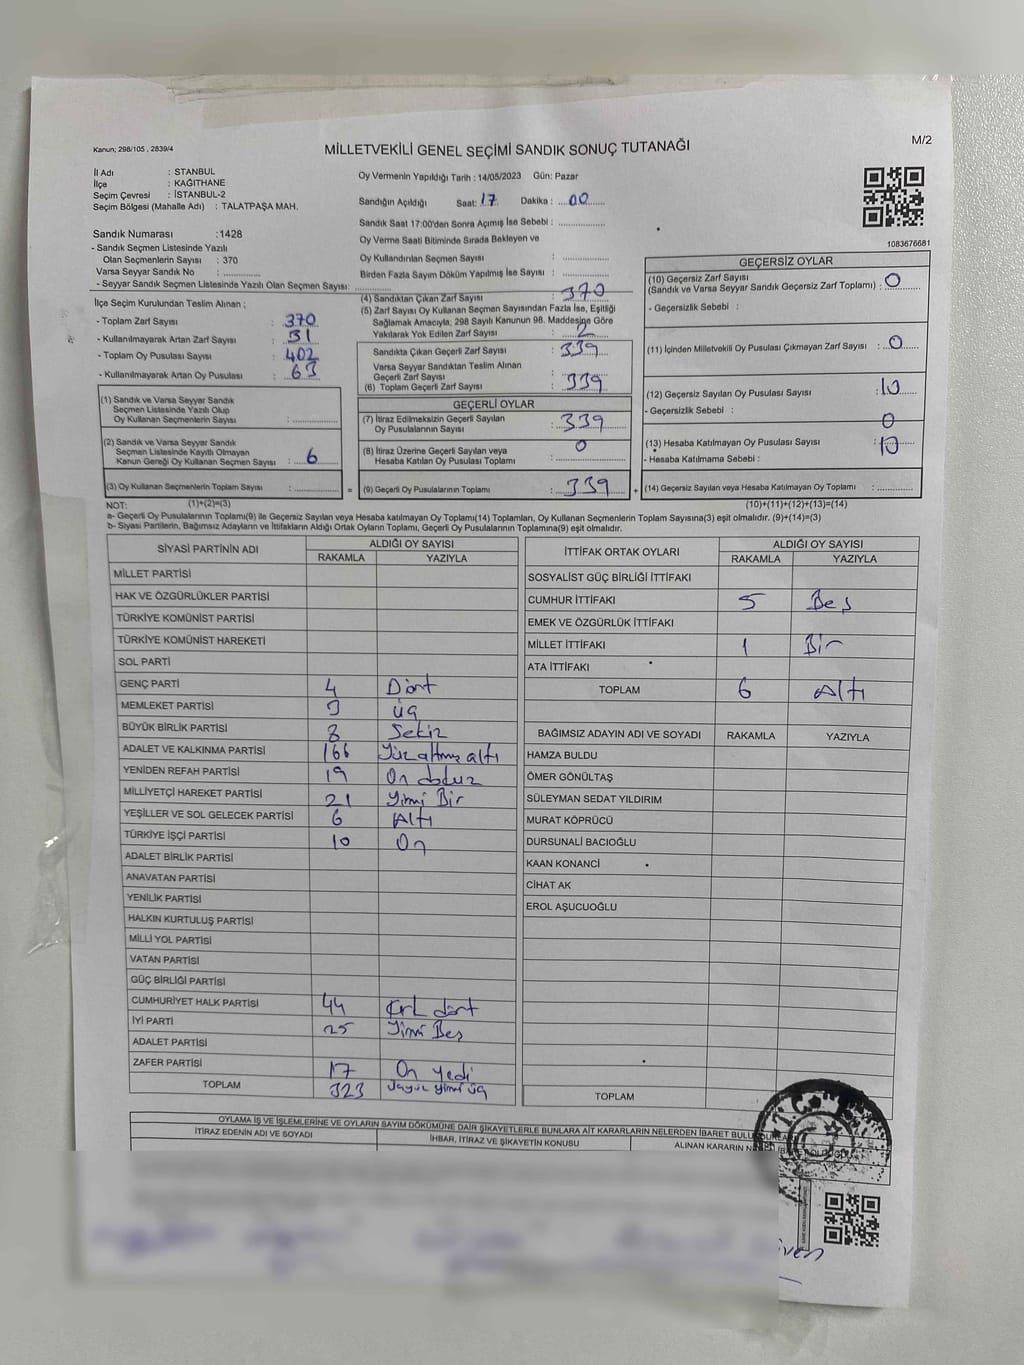 Kanun; 298/105 , 2839/4
MİLLETVEKİLİ GENEL SEÇİMİ SANDIK SONUÇ TUTANAĞI
M/2
İl Adı : STANBUL
İlçe : KAĞITHANE
Seçim Çevresi : İSTANBUL-2
Seçim Bölgesi (Mahalle Adı) : TALATPAŞA MAH.
Sandık Numarası :1428
- Sandık Seçmen Listesinde Yazılı
Olan Seçmenlerin Sayısı : 370
Varsa Seyyar Sandık No :
- Seyyar Sandık Seçmen Listesinde Yazılı Olan Seçmen Sayısı:
Oy Vermenin Yapıldığı Tarih : 14/05/2023 Gün: Pazar
Sandığın Açıldığı Saat: 17 Dakika : 00
Sandık Saat 17:00'den Sonra Açımış İse Sebebi :
Oy Verme Saati Bitiminde Sırada Bekleyen ve
Oy Kullandırılan Seçmen Sayısı :
Birden Fazla Sayım Döküm Yapılmış İse Sayısı :
1083676681
İlçe Seçim Kurulundan Teslim Alınan ;
- Toplam Zarf Sayısı : 370
- Kullanılmayarak Artan Zarf Sayısı : 31
- Toplam Oy Pusulası Sayısı : 402
- Kullanılmayarak Artan Oy Pusulası : 63
(1) Sandık ve Varsa Seyyar Sandık
Seçmen Listesinde Yazılı Olup
Oy Kullanan Seçmenlerin Sayısı :
(2) Sandık ve Varsa Seyyar Sandık
Seçmen Listesinde Kayıtlı Olmayan
Kanun Gereği Oy Kullanan Seçmen Sayısı : 6
(3) Oy Kullanan Seçmenlerin Toplam Sayısı :
(4) Sandıktan Çıkan Zarf Sayısı : 370
(5) Zarf Sayısı Oy Kullanan Seçmen Sayısından Fazla İse, Eşitliği
Sağlamak Amacıyla; 298 Sayılı Kanunun 98. Maddesine Göre
Yakılarak Yok Edilen Zarf Sayısı : 2
Sandıkta Çıkan Geçerli Zarf Sayısı : 339
Varsa Seyyar Sandıktan Teslim Alınan
Geçerli Zarf Sayısı
(6) Toplam Geçerli Zarf Sayısı : 339
GEÇERLİ OYLAR
(7) İtiraz Edilmeksizin Geçerli Sayılan
Oy Pusulalarının Sayısı : 339
(8) İtiraz Üzerine Geçerli Sayılan veya
Hesaba Katılan Oy Pusulası Toplamı : 0
= (9) Geçerli Oy Pusulalarının Toplamı : 339 +
GEÇERSİZ OYLAR
(10) Geçersiz Zarf Sayısı
(Sandık ve Varsa Seyyar Sandık Geçersiz Zarf Toplamı) : 0
- Geçersizlik Sebebi :
(11) İçinden Milletvekili Oy Pusulası Çıkmayan Zarf Sayısı : 0
(12) Geçersiz Sayılan Oy Pusulası Sayısı : 10
- Geçersizlik Sebebi :
0
(13) Hesaba Katılmayan Oy Pusulası Sayısı : 10
- Hesaba Katılmama Sebebi :
(14) Geçersiz Sayılan veya Hesaba Katılmayan Oy Toplamı :
NOT: (1)+(2)=(3) (10)+(11)+(12)+(13)=(14)
a- Geçerli Oy Pusulalarının Toplamı(9) ile Geçersiz Sayılan veya Hesaba katılmayan Oy Toplamı(14) Toplamları, Oy Kullanan Seçmenlerin Toplam Sayısına(3) eşit olmalıdır. (9)+(14)=(3)
b- Siyasi Partilerin, Bağımsız Adayların ve İttifakların Aldığı Oyların Toplamı, Geçerli Oy Pusulalarının Toplamına(9) eşit olmalıdır.
SİYASİ PARTİNİN ADI ALDIĞI OY SAYISI
RAKAMLA YAZIYLA
MİLLET PARTİSİ
HAK VE ÖZGÜRLÜKLER PARTİSİ
TÜRKİYE KOMÜNİST PARTİSİ
TÜRKİYE KOMÜNİST HAREKETİ
SOL PARTİ
GENÇ PARTİ 4 Dört
MEMLEKET PARTİSİ 3 üç
BÜYÜK BİRLİK PARTİSİ 8 Sekiz
ADALET VE KALKINMA PARTİSİ 166 Yüz altmış altı
YENİDEN REFAH PARTİSİ 19 On dokuz
MİLLİYETÇİ HAREKET PARTİSİ 21 Yirmi Bir
YEŞİLLER VE SOL GELECEK PARTİSİ 6 Altı
TÜRKİYE İŞÇİ PARTİSİ 10 On
ADALET BİRLİK PARTİSİ
ANAVATAN PARTİSİ
YENİLİK PARTİSİ
HALKIN KURTULUŞ PARTİSİ
MİLLİ YOL PARTİSİ
VATAN PARTİSİ
GÜÇ BİRLİĞİ PARTİSİ
CUMHURİYET HALK PARTİSİ 44 Kırk dört
İYİ PARTİ 25 Yirmi Beş
ADALET PARTİSİ
ZAFER PARTİSİ 17 On Yedi
TOPLAM 323 üçyüz yirmi üç
İTTİFAK ORTAK OYLARI ALDIĞI OY SAYISI
RAKAMLA YAZIYLA
SOSYALİST GÜÇ BİRLİĞİ İTTİFAKI
CUMHUR İTTİFAKI 5 Beş
EMEK VE ÖZGÜRLÜK İTTİFAKI
MİLLET İTTİFAKI 1 Bir
ATA İTTİFAKI
TOPLAM 6 Altı
BAĞIMSIZ ADAYIN ADI VE SOYADI RAKAMLA YAZIYLA
HAMZA BULDU
ÖMER GÖNÜLTAŞ
SÜLEYMAN SEDAT YILDIRIM
MURAT KÖPRÜCÜ
DURSUNALİ BACIOĞLU
KAAN KONANCİ
CİHAT AK
EROL AŞUCUOĞLU
TOPLAM
OYLAMA İŞ VE İŞLEMLERİNE VE OYLARIN SAYIM DÖKÜMÜNE DAİR ŞİKAYETLERLE BUNLARA AİT KARARLARIN NELERDEN İBARET
İTİRAZ EDENİN ADI VE SOYADI İHBAR, İTİRAZ VE ŞİKAYETİN KONUSU ALINAN KARARIN
T.C.